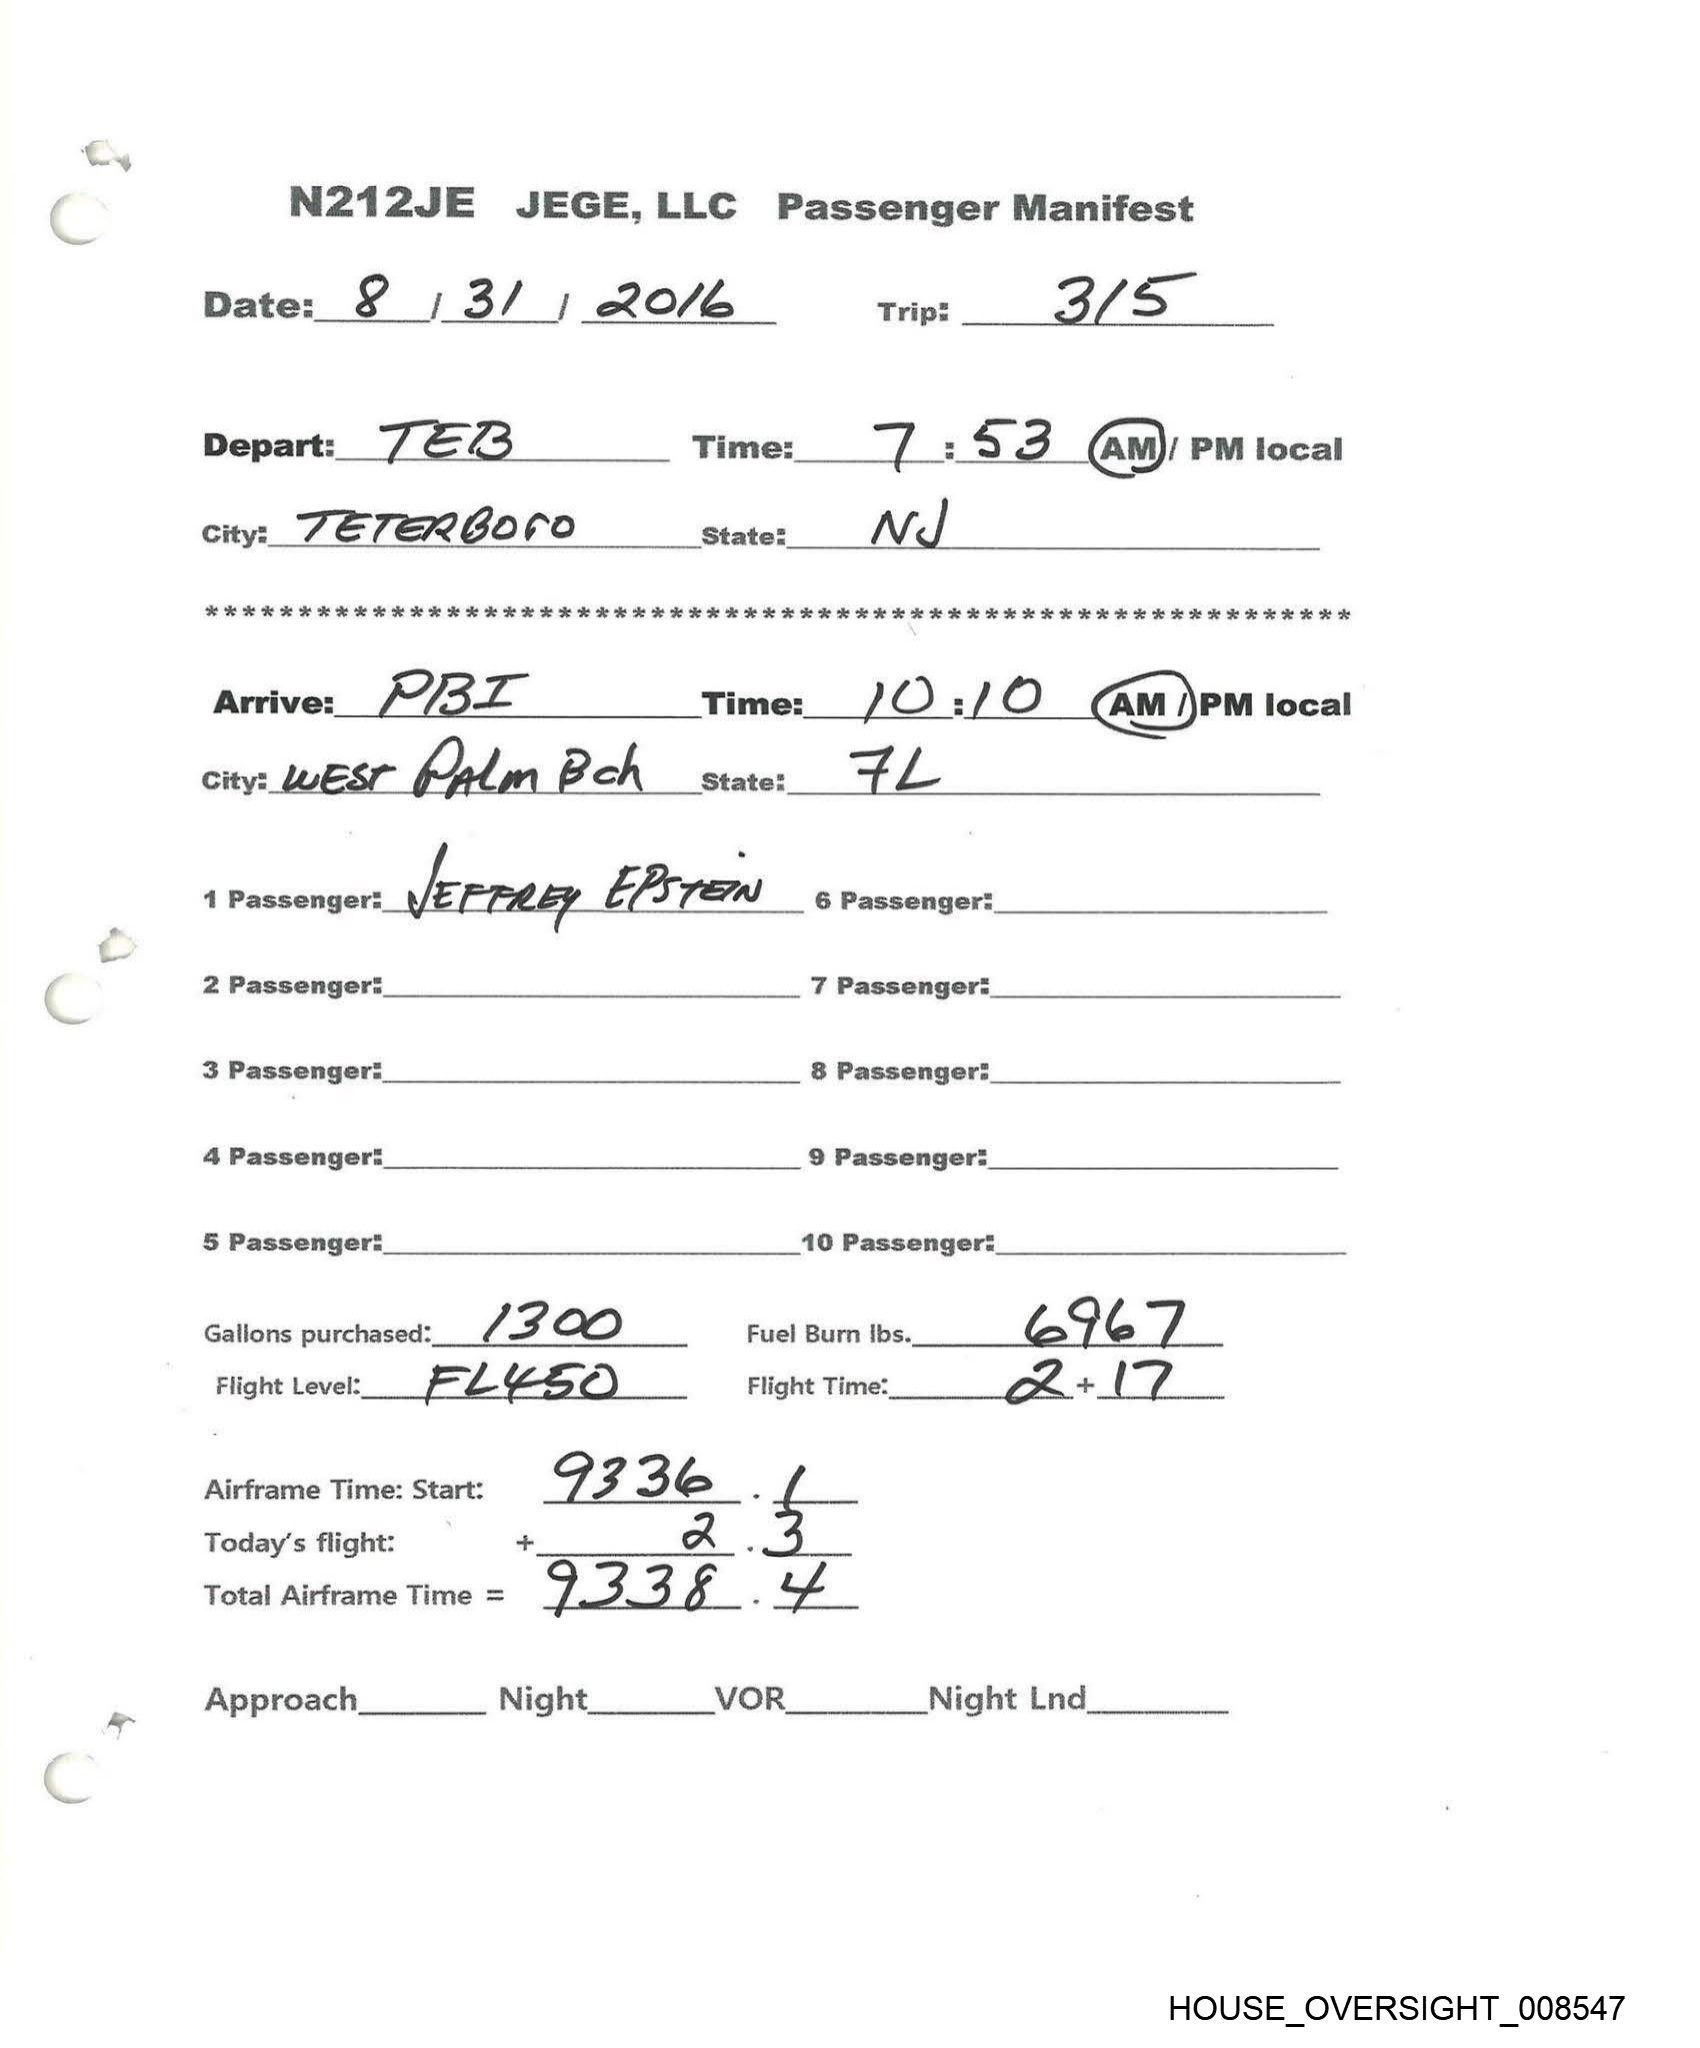 N212JE JEGE, LLC Passenger Manifest
Date: 8 / 31 / 2016 Trip: 315
Depart: TEB Time: 7 : 53 AM / PM local
City: TETERBORO State: NJ
**************************************************************
Arrive: PBI Time: 10 : 10 AM / PM local
City: WEST PALM Bch State: FL
1 Passenger: JEFFREY EPSTEIN 6 Passenger:
2 Passenger: 7 Passenger:
3 Passenger: 8 Passenger:
4 Passenger: 9 Passenger:
5 Passenger: 10 Passenger:
Gallons purchased: 1300 Fuel Burn lbs. 6967
Flight Level: FL450 Flight Time: 2 + 17
Airframe Time: Start: 9336 . 1
Today's flight: + 2 . 3
Total Airframe Time = 9338 . 4
Approach Night VOR Night Lnd
HOUSE_OVERSIGHT_008547